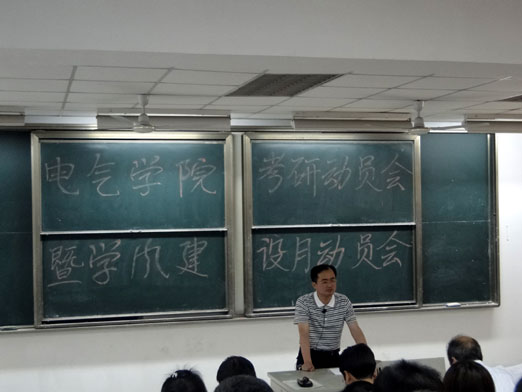 电气学院 考研动员会
暨学风建 设月动员会